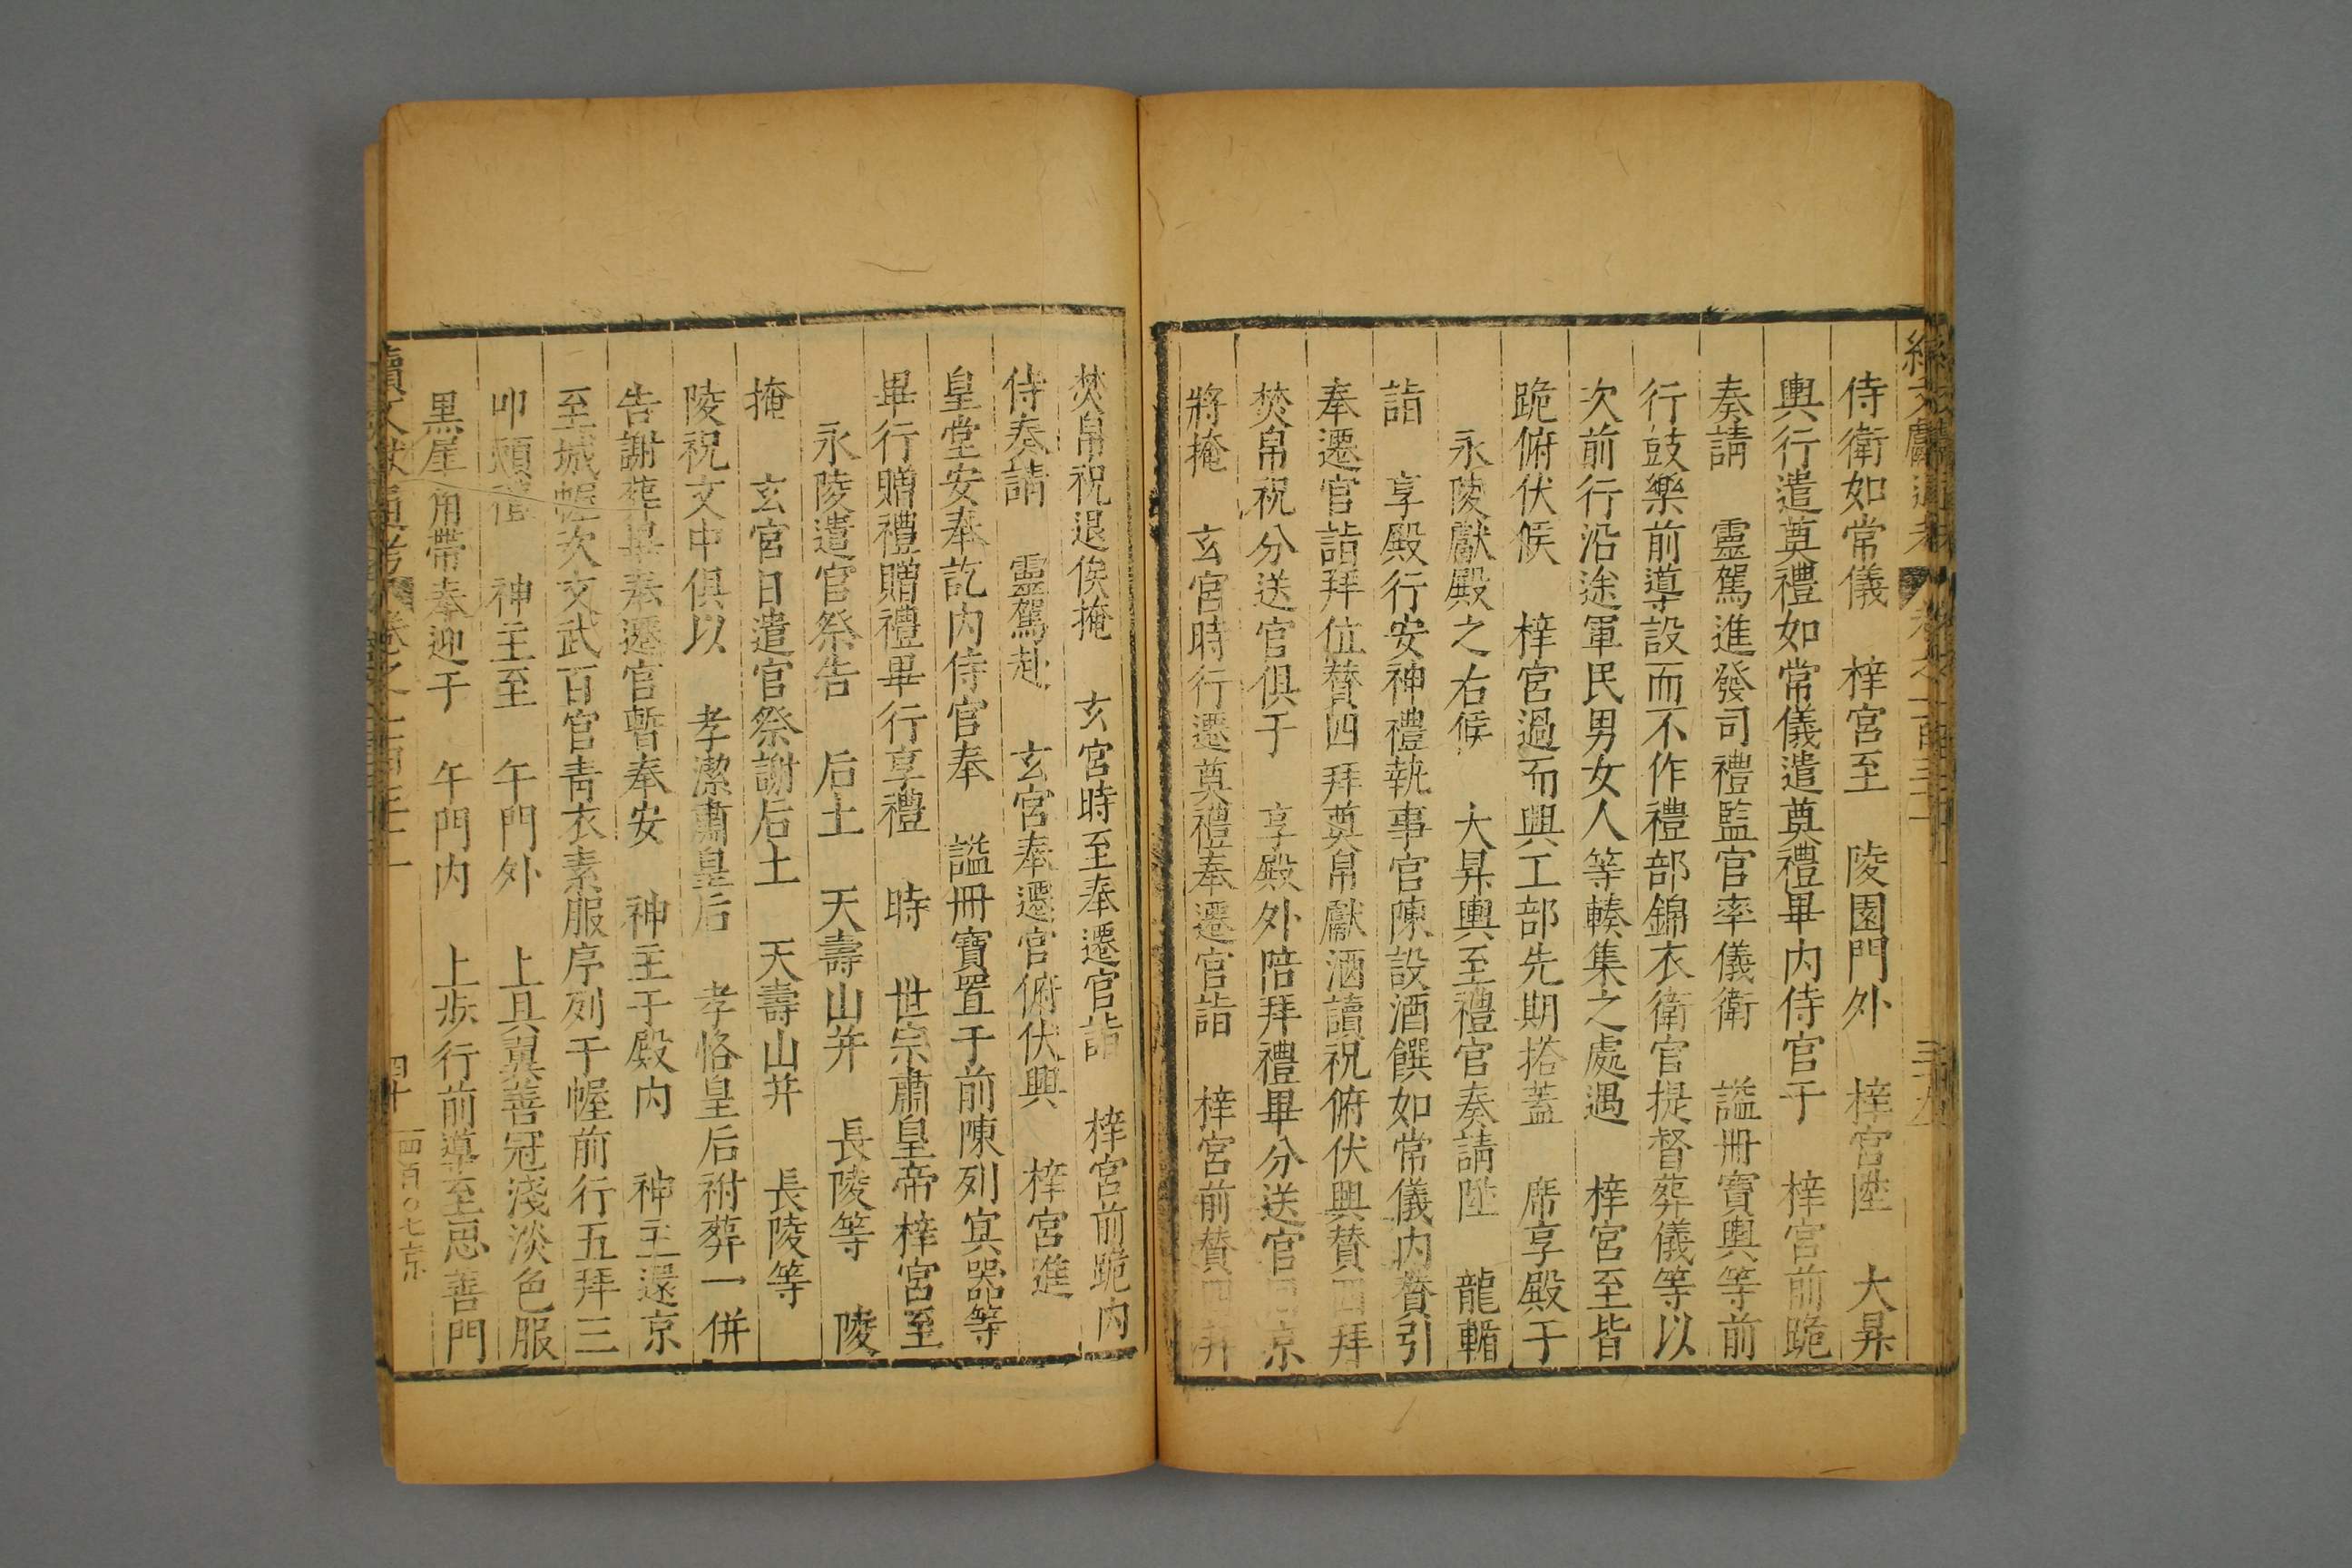 續文獻通考 卷之一百三十一 三十九
侍衛如常儀 梓宮至 陵園門外 梓宮陞 大昇
輿行遣奠禮如常儀遣奠禮畢内侍官于 梓宮前跪
奏請 靈駕進發司禮監官率儀衛 謚冊寶輿等前
行鼓樂前導設而不作禮部錦衣衛官提督葬儀等以
次前行沿途軍民男女人等輳集之處遇 梓宮至皆
跪俯伏候 梓宮過而興工部先期搭蓋 席享殿于
永陵獻殿之右候 大昇輿至禮官奏請陞 龍輴
詣 享殿行安神禮執事官陳設酒饌如常儀内贊引
奉遷官詣拜位贊四拜奠帛獻酒讀祝俯伏興贊四拜
焚帛祝分送官俱于 享殿外陪拜禮畢分送官 京
將掩 玄宮時行遷奠禮奉遷官詣 梓宮前贊四拜
焚帛祝退俟掩 玄宮時至奉遷官詣 梓宮前跪内
侍奏請 靈駕赴 玄宮奉遷官俯伏興 梓宮進
皇堂安奉訖内侍官奉 謚冊寶置于前陳列冥器等
畢行贈禮贈禮畢行享禮 時 世宗肅皇帝梓宮至
永陵遣官祭告 后土 天壽山并 長陵等 陵
掩 玄宮日遣官祭謝后土 天壽山并 長陵等
陵祝文中俱以 孝潔肅皇后 孝恪皇后祔葬一併
告謝葬畢奉遷官暫奉安 神主于殿内 神主還京
至城幄次文武百官青衣素服序列于幄前行五拜三
叩頭禮 神主至 午門外 上具翼善冠淺淡色服
黑犀角帶奉迎于 午門内 上步行前導至思善門
續文獻通考 卷之一百三十一 四十 四百〇七京